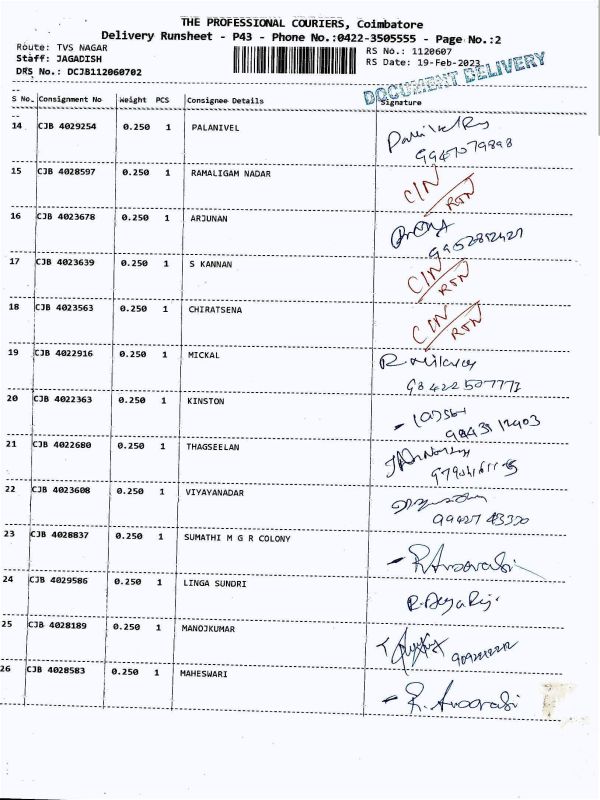 THE PROFESSIONAL COURIERS, Coimbatore
Delivery Runsheet - P43 - Phone No.:0422-3505555 - Page No.:2
Route: TVS NAGAR
RS No.: 1120607
Staff: JAGADISH
RS Date: 19-Feb-2023
DRS No.: DCJB112060702
DOCUMENT DELIVERY
S No. Consignment No Weight PCS Consignee Details Signature
14 CJB 4029254 0.250 1 PALANIVEL
15 CJB 4028597 0.250 1 RAMALIGAM NADAR CIN
RTN
16 CJB 4023678 0.250 1 ARJUNAN
17 CJB 4023639 0.250 1 S KANNAN CIN
RTN
18 CJB 4023563 0.250 1 CHIRATSENA CIN
RTN
19 CJB 4022916 0.250 1 MICKAL
20 CJB 4022363 0.250 1 KINSTON
21 CJB 4022680 0.250 1 THAGSEELAN
22 CJB 4023608 0.250 1 VIYAYANADAR
23 CJB 4028837 0.250 1 SUMATHI M G R COLONY
24 CJB 4029586 0.250 1 LINGA SUNDRI
25 CJB 4028189 0.250 1 MANOJKUMAR
26 CJB 4028583 0.250 1 MAHESWARI